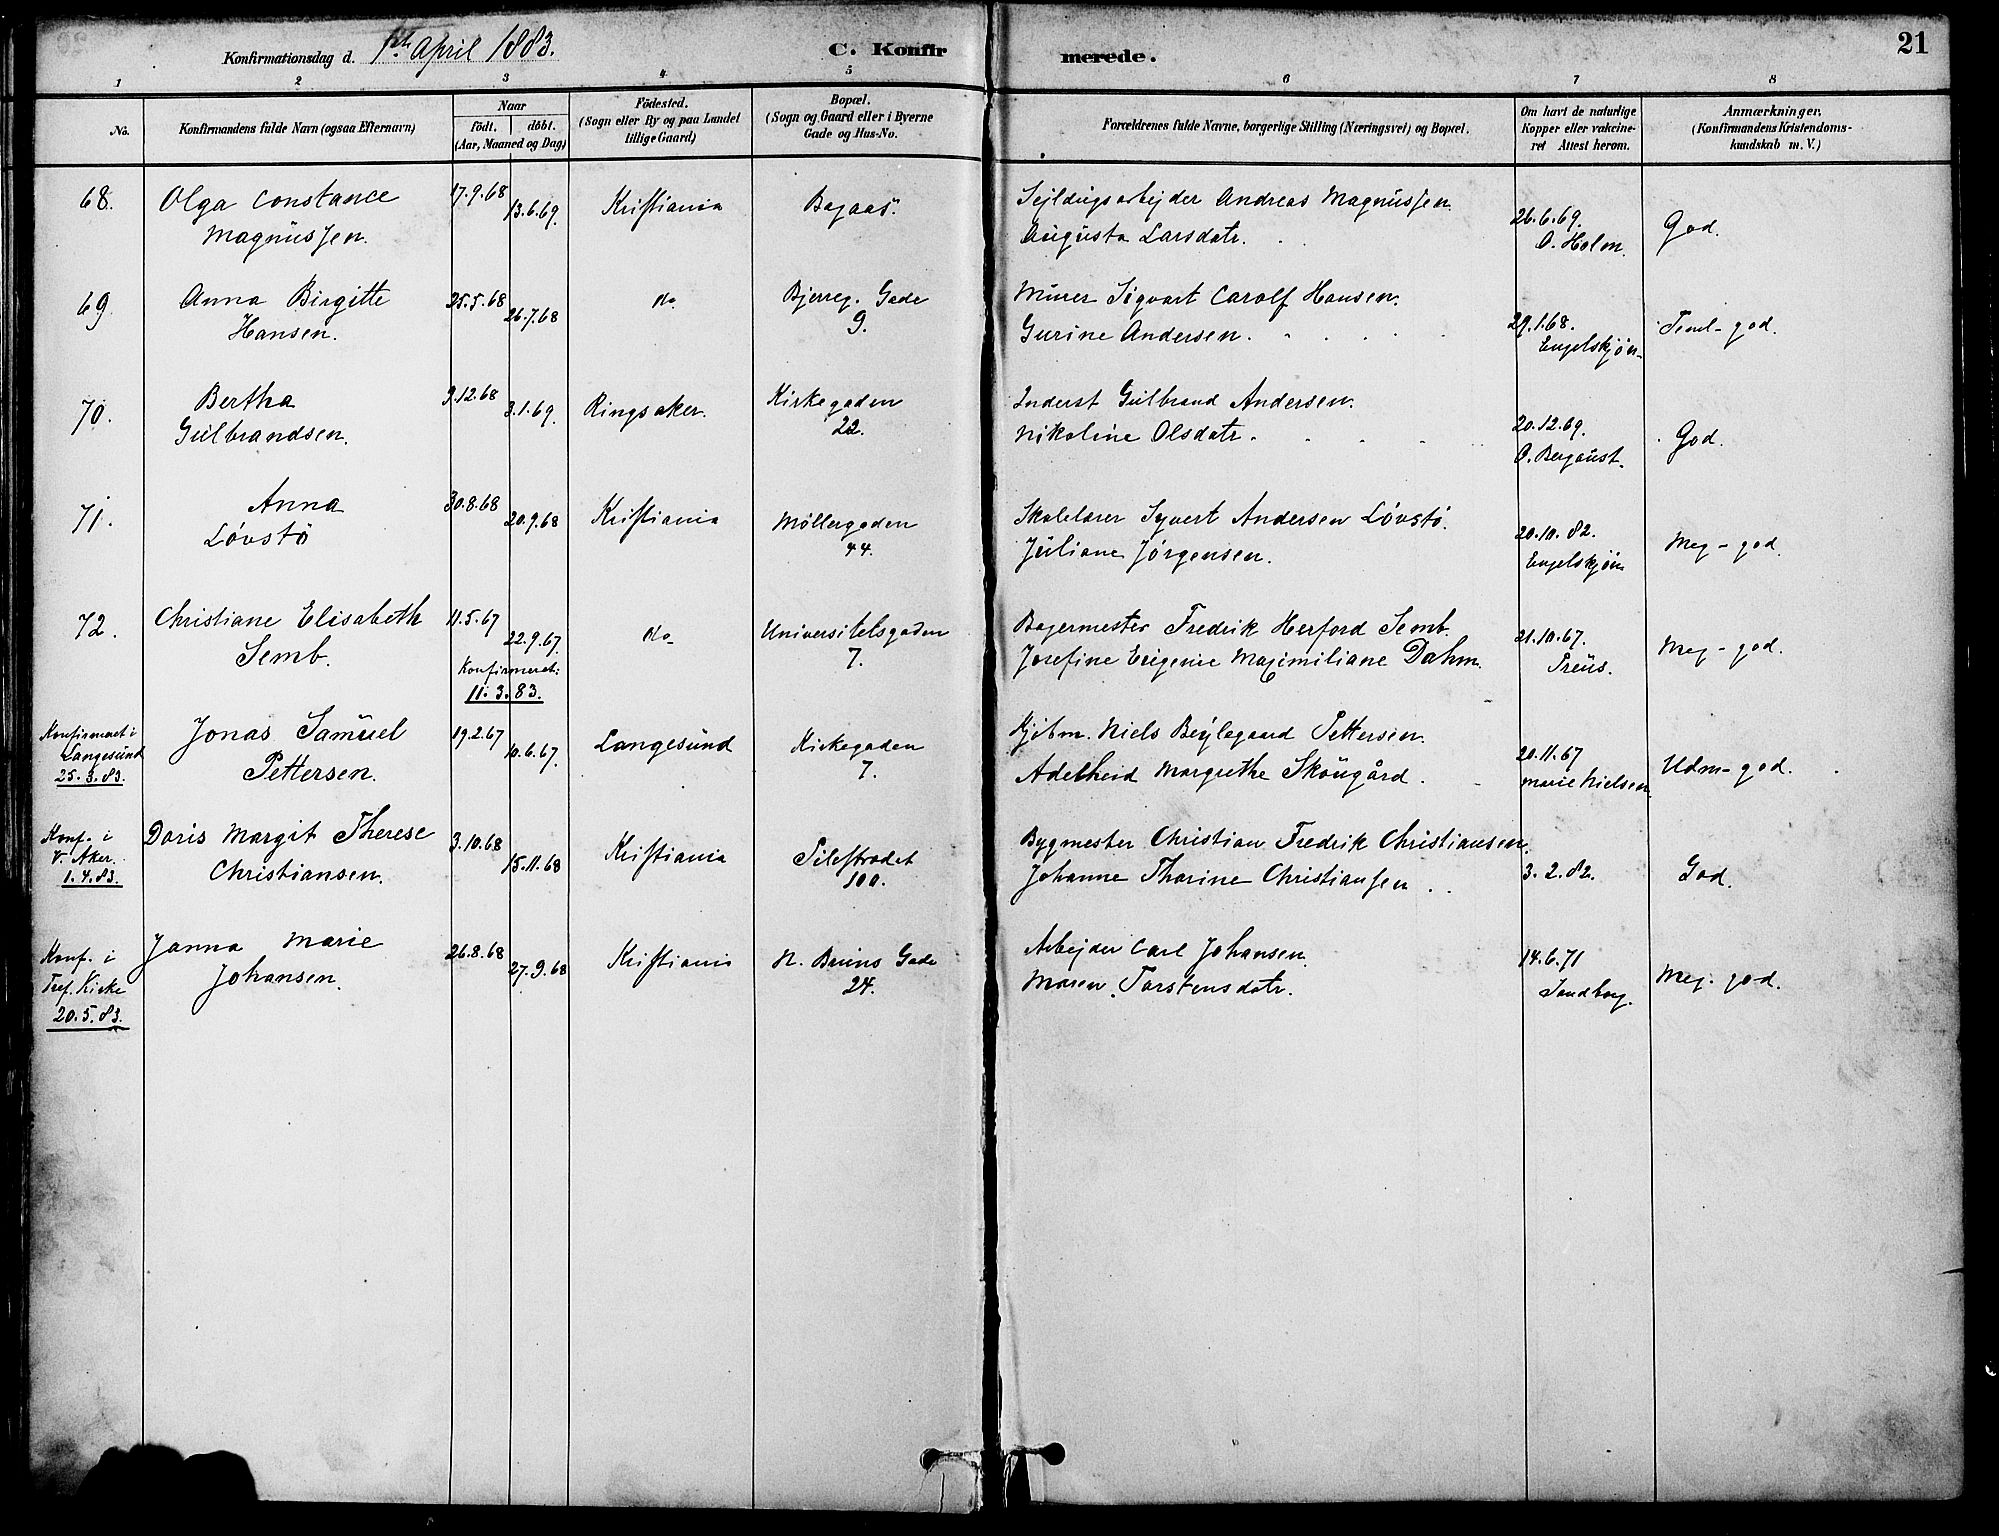 Konfirmationsdag d. 1ste April 1883.
C. Konfirmerede.
21
1 2 3 4 5 6 7 8
No.
Konfirmandens fulde Navn (ogsaa Efternavn)
Naar
födt. döbt.
(Aar, Maaned og Dag)
Födested.
(Sogn eller By og paa Landet
tillige Gaard)
Bopæl.
(Sogn og Gaard eller i Byerne
Gade og Hus-No.
Forældrenes fulde Navne, borgerlige Stilling (Næringsvei) og Bopæl.
Om havt de naturlige
Kopper eller vakcine-
ret Attest herom.
Anmærkninger.
(Konfirmandens Kristendoms-
kundskab m. V.)
68. Olga Constance 17.9.68 13.6.69. Kristiania Bagaas. Andreas Magnussen.
Magnussen. Augusta Larsdatr. 26.6.69. O. Holm God.
69. Anna Birgitte 25.5.68 26.7.68 do Bjerreg. Gade Murer Sigvart Carolf Hansen.
Hansen. 9. Gurine Andersen. 29.1.68. Engelskjøn Teml-god.
70. Bertha 9.12.68 3.1.69. Ringsaker. Kirkegaden Inderst Gulbrand Andersen.
Gulbrandsen. 22. Nikoline Olsdatr. 20.12.69. O. Bergaust. God.
71. Anna 30.8.68 20.9.68 Kristiania Møllergaden Skolelærer Syvert Andersen Løvstö.
Løvstö 44. Juliane Jørgensen. 20.10.82. Engelskjøn Meg-god.
72. Christiane Elisabeth 11.5.67 22.9.67. do Universitetsgaden Bagermester Fredrik Herford Semb.
Semb. Konfirmeret: 7. Josefine Eugenie Maximiliane Dahm. 21.10.67. Preus. Meg-god.
11.3.83.
Konfirmeret i Jonas Samuel 19.2.67 10.6.67. Langesund Kirkegaden Kjøbm. Niels Pettersen.
Langesund Pettersen. 7. Adelheid Margrethe Skougård. 20.11.67 Marie Nielsen. Udm-god.
25.3.83.
Konf. i Doris Margit Therese 3.10.68 15.11.68 Kristiania Pilestrædet Bygmester Christian Fredrik Christiansen.
V. Aker. Christiansen. 100. Johanne Thorine Christiansen 3.2.82. God.
1.4.83.
Konf. i Janna Marie 26.8.68 27.9.68 Kristiania N. Bruns Gade Arbejder Carl Johansen.
Tref. Kirke Johansen. 24. Maren Torstensdatr. 14.6.71 Sandberg. Meg. god.
20.5.83.